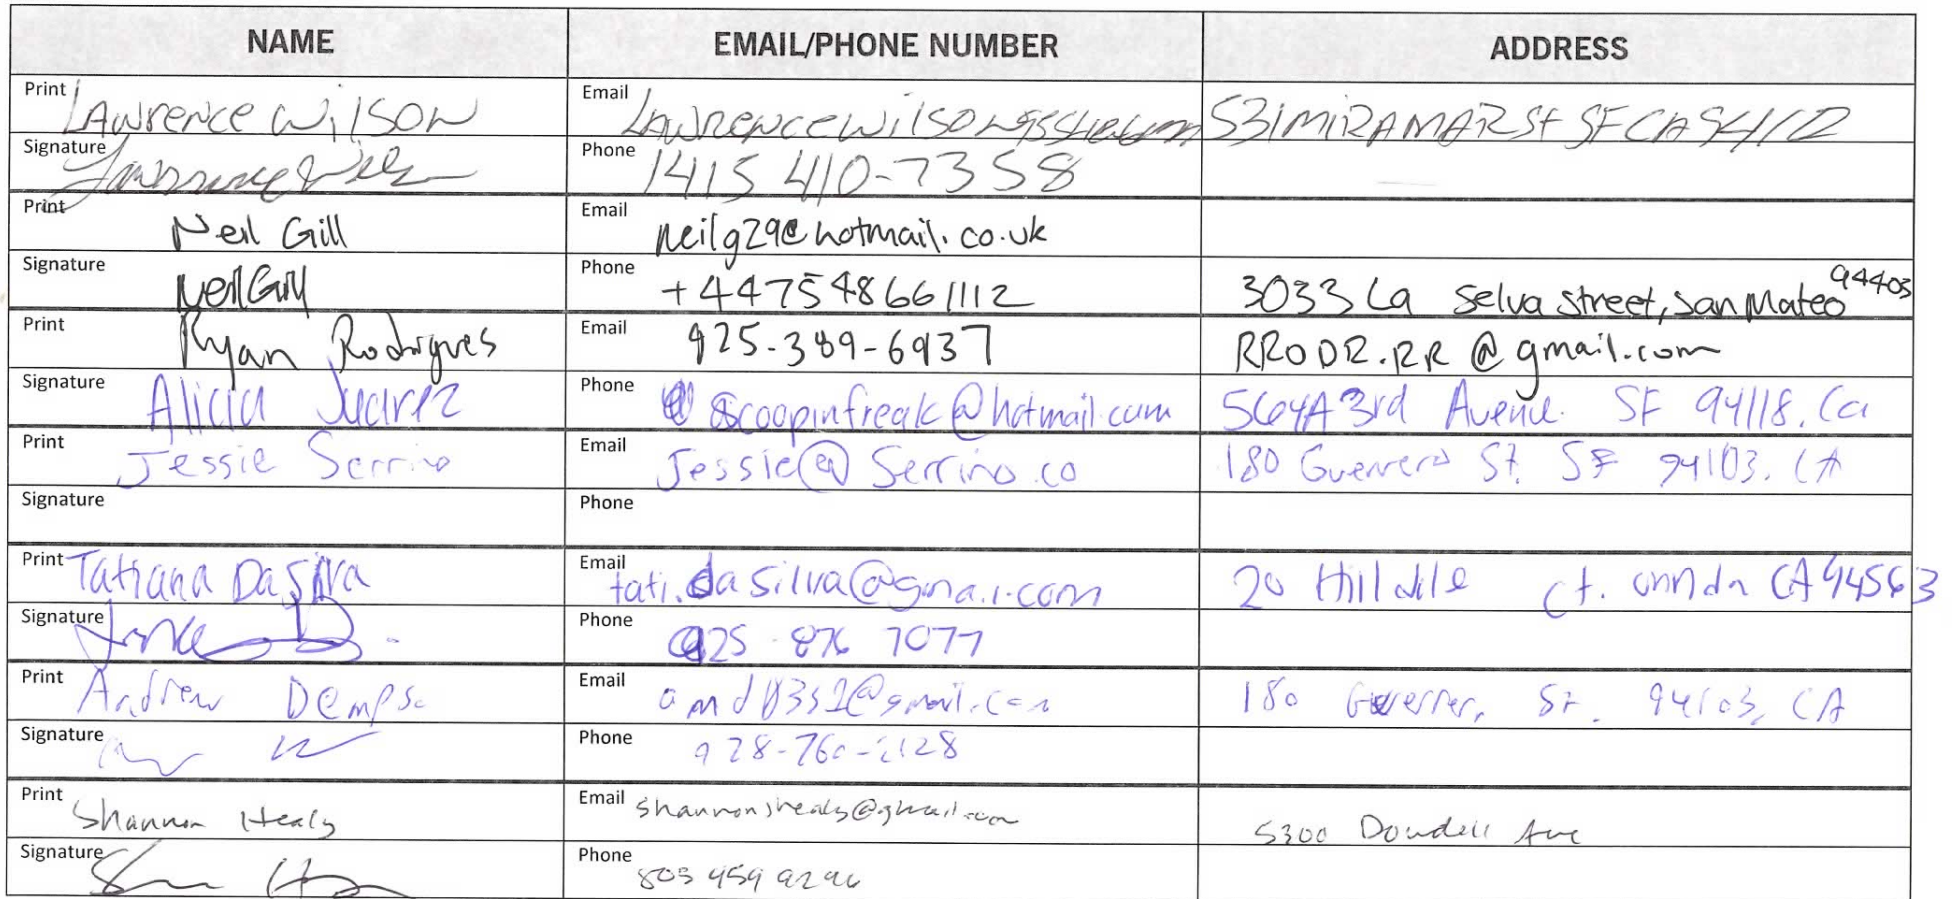 NAME EMAIL/PHONE NUMBER ADDRESS
Print Lawrence Wilson Email 531 MIRAMAR St SF CA 94112
Signature Phone 1415 410-7358
Print Neil Gill Email neilg29@hotmail.co.uk
Signature Neil Gill Phone +447548661112 3033 La Selva Street, San Mateo 94403
Print Ryan Rodrigues Email 925-389-6937 RRODR.RR@gmail.com
Signature Alicia Juarez Phone scoopinfreak@hotmail.com 564A 3rd Avenue. SF 94118, Ca
Print Jessie Serrino Email Jessie@Serrino.co 180 Guerrero St. SF 94103, CA
Signature Phone
Print Tatiana DaSilva Email tati.dasilva@gmail.com 20 Hill Ct. CA 94563
Signature Phone 925-876 7077
Print Andrew Email 180 St. 94103, CA
Signature Phone
Print Shannon Healy Email shannonshealy@gmail.com 5300 Ave
Signature Phone 805 459